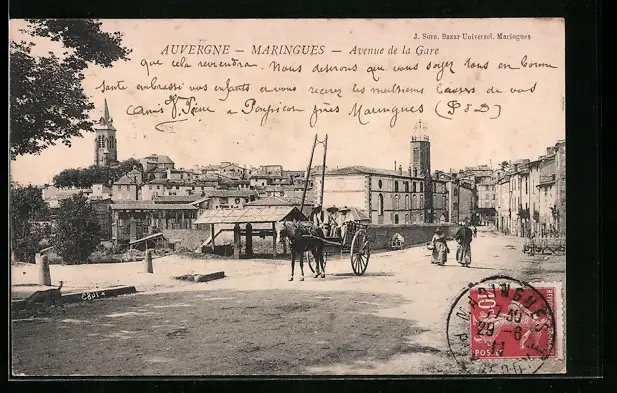 J. Sure. Bazar Universel. Maringues
AUVERGNE — MARINGUES — Avenue de la Gare
que cela reviendra. Nous desirons que vous soyez tous en bonne
santé embrassez vos enfants et vous recevez les meilleurs baisers de vos
amis près Maringues (P. D)
1083
MARINGUES
10
29-6
11
POSTES